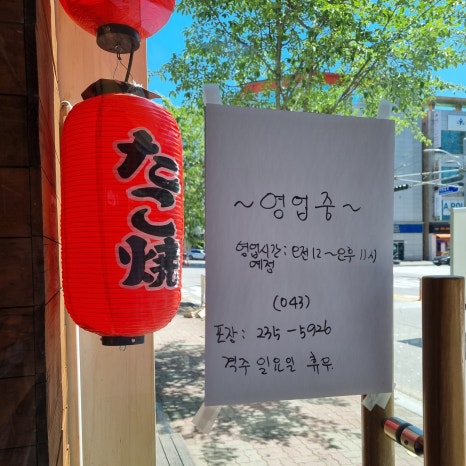 たこ焼
~영업중~
영업시간: 오전12~오후11시
예정
(043)
포장: 235-5926
격주 일요일 휴무.